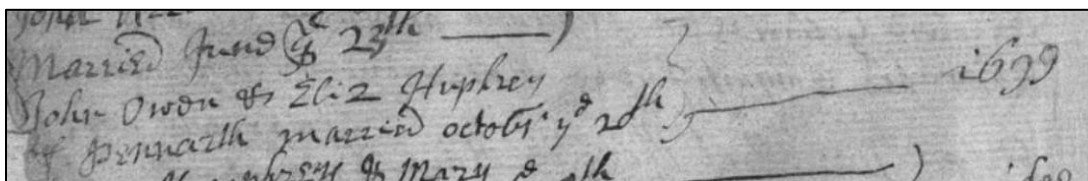 John
Married June ye 23th
John Owen & Eliz Huphrey 1699
of Pennarth married octobr ye 20th
& Mary